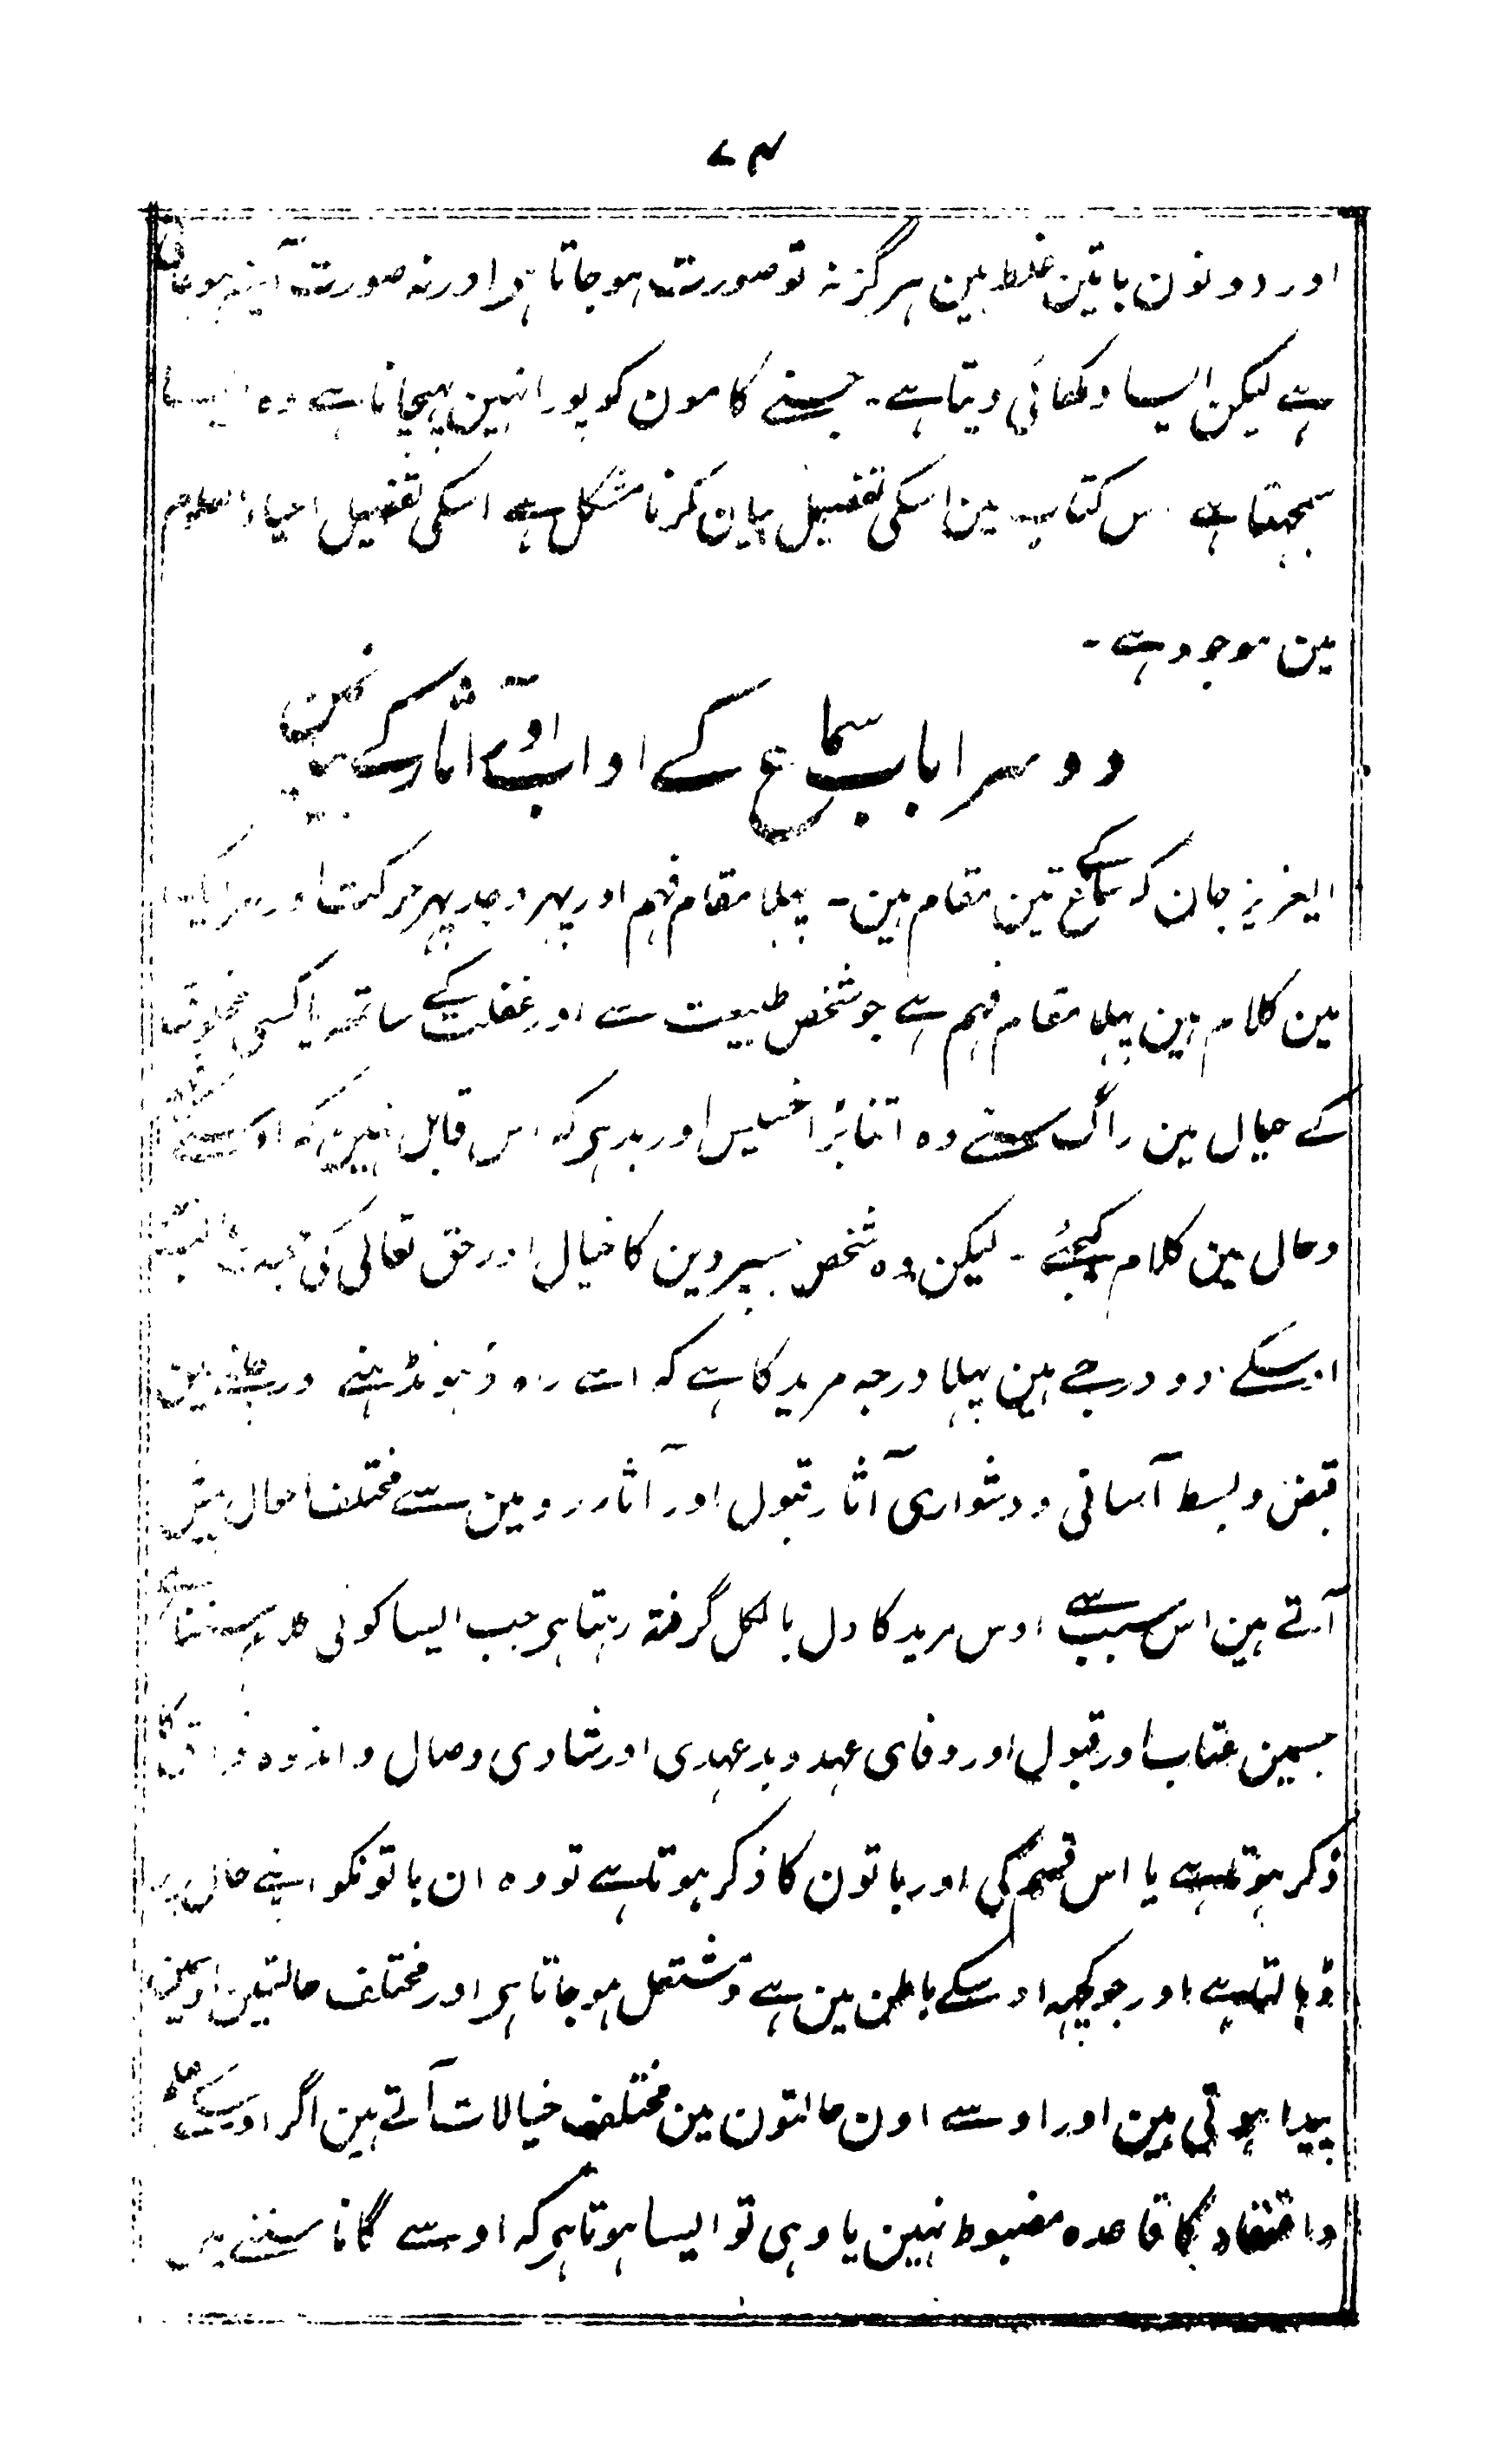 ۷۴
اور دونون باتین غلط ہین ہرگز نہ تو صورت ہو جاتا ہے اور نہ صورت آئینہ ہو جاتی
ہے لیکن ایسا دکھائی دیتا ہے۔ جسنے کامون کو پورا نہین پہچانا ہے وہ ایسا
سمجہتا ہے اس کتاب مین اسکی تفصیل بیان کرنا مشکل ہے اسکی تفصیل احیاء العلوم
مین موجود ہے۔
دوسرا باب سماع کے اداب اور اثار کے بیان مین
ایعزیز جان کہ سماع کے تین مقام ہین۔ پہلا مقام فہم اور پہر وجد پہر حرکت اور ہر ایک
مین کلام ہین پہلا مقام فہم ہے جو شخص طبیعت سے اور غفلت کے ساتھ یا کسی مخلوق
کے خیال مین راگ سنے وہ اتنا بڑا خسیس اور بد ہے کہ اس قابل نہین کہ اوسکے
وحال مین کلام کیجئے۔ لیکن وہ شخص جسپر دین کا خیال اور حق تعالی کی محبت
اسکے دو درجے ہین پہلا درجہ مرید کا ہے کہ اسے راہ ڈہونڈہنے اور چلنے مین
قبض وبسط آسانی ودشواری آثار قبول اور آثار رد مین سے مختلف احوال پیش
آتے ہین اس سبب سے اوس مرید کا دل بالکل گرفتہ رہتا ہے جب ایسا کوئی کلام سنتا ہے
جسمین عتاب اور قبول اور وفای عہد وبدعہدی اور شادی وصال واندوہ فراق کا
ذکر ہوتا ہے یا اس قسم کی اور باتون کا ذکر ہوتا ہے تو وہ ان باتونکو اپنے حال پر
ڈہالتا ہے اور جو کچہہ اوسکے باطن مین ہے وہ مشتعل ہو جاتا ہے اور مختلف حالتین اوسمین
پیدا ہوتی ہین اور اوسے اون حالتون مین مختلف خیالات آتے ہین اگر اوسکے علم
واعتقاد کا قاعدہ مضبوط نہین یا وہی تو ایسا ہوتا ہے کہ اوسے گانا سننے مین